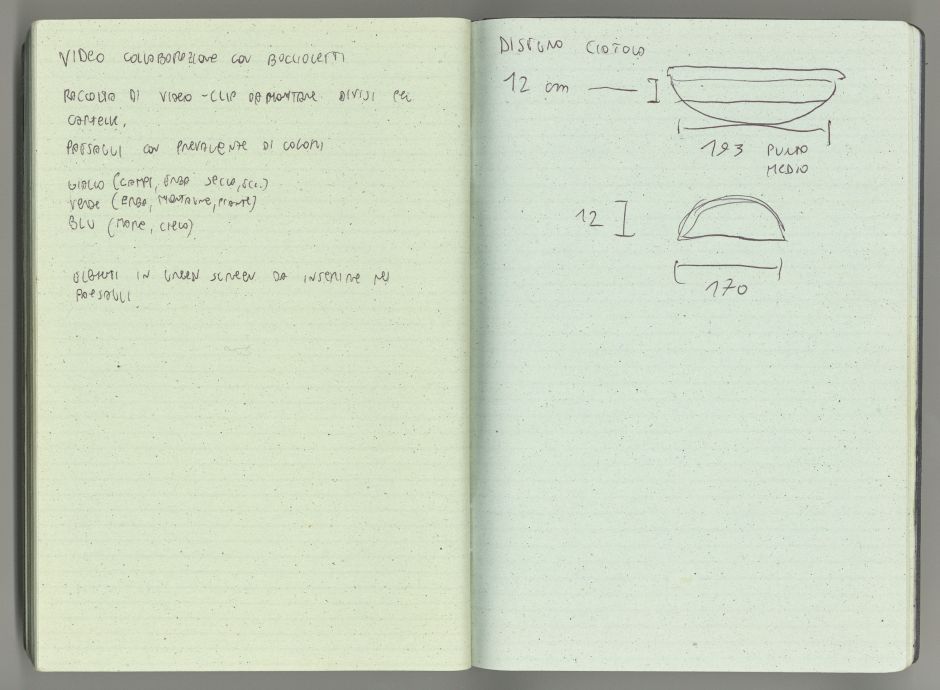 VIDEO COLLABORAZIONE CON BOCCIOLETTI
RACCOLTA DI VIDEO-CLIP DA MONTARE DIVISI PER
CARTELLE,
PAESAGGI CON PREVALENTE DI COLORI
GIALLO (CAMPI, ERBA SECCA, ECC.)
VERDE (ERBA, MONTAGNE, PIANTE)
BLU (MARE, CIELO)
IN GREEN SCREEN DA INSERIRE NEI
PAESAGGI
DISEGNO CIOTOLA
12 cm
193 PUNTO
MEDIO
12
170